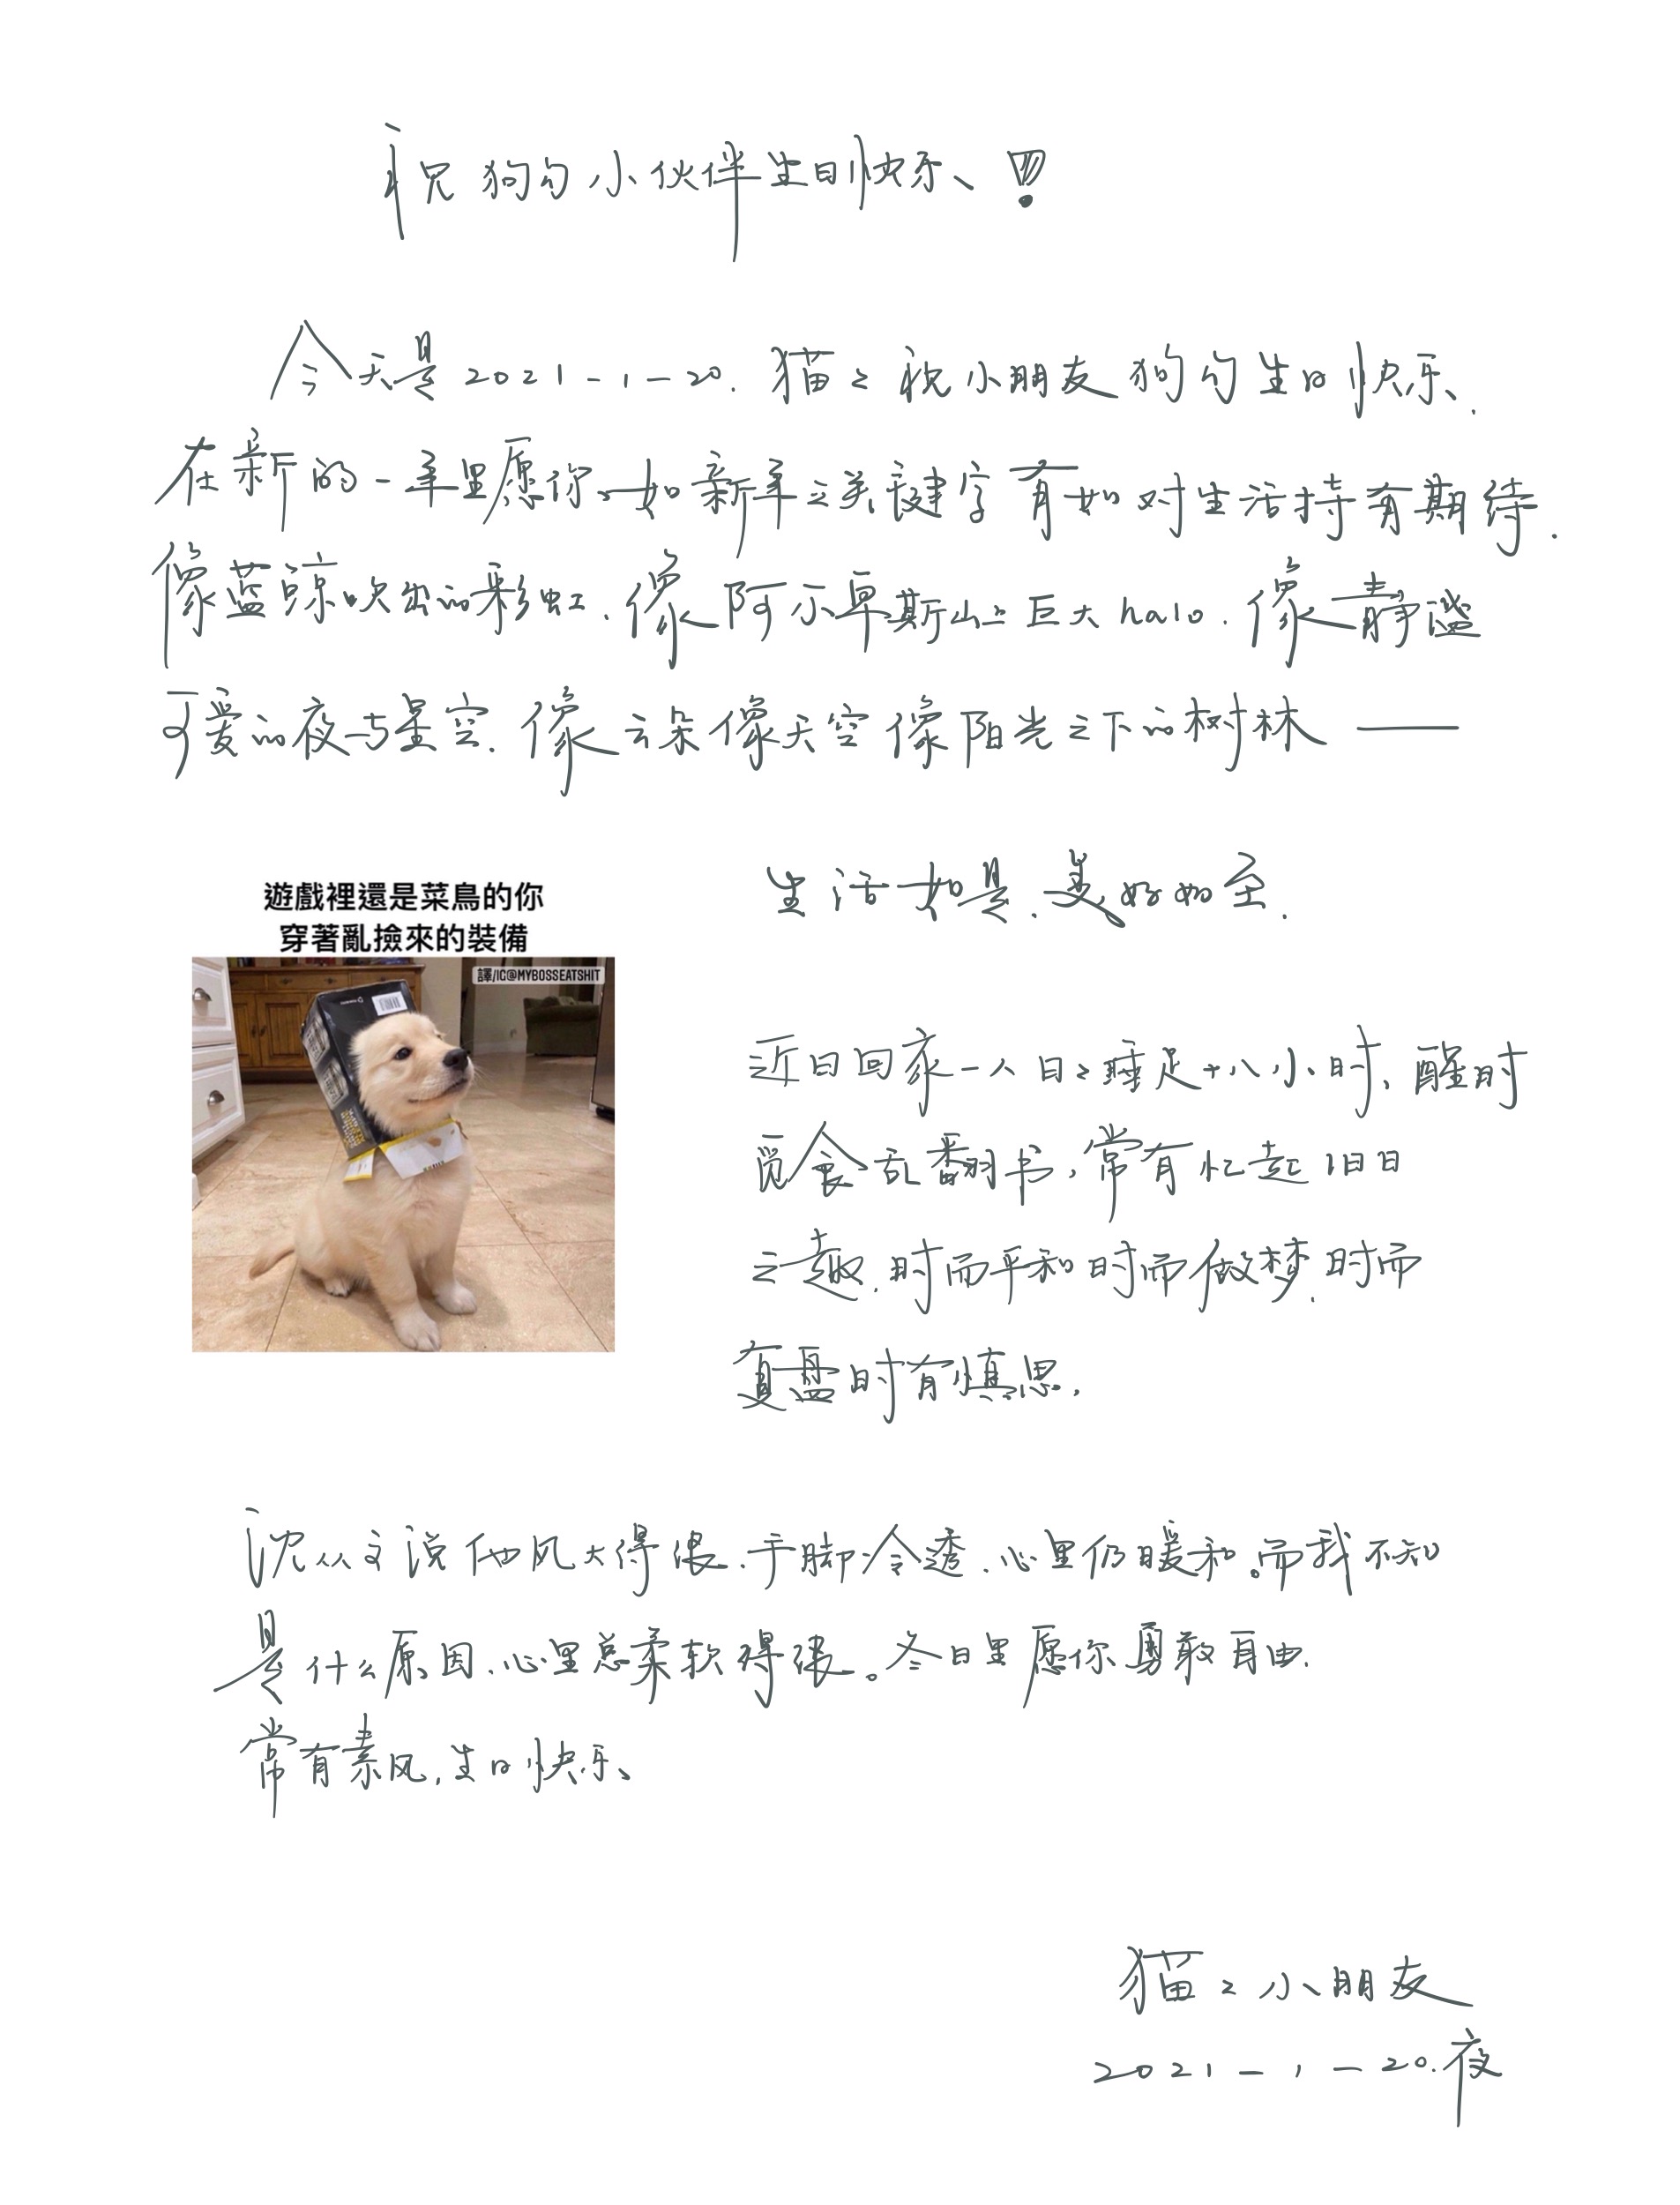 祝狗勾小伙伴生日快乐、!
今天是2021-1-20. 猫々祝小朋友狗勾生日快乐、.
在新的一年里愿你、如新年之关键字有如对生活持有期待.
像蓝鲸吹出的彩虹、像阿尔卑斯山上巨大halo. 像静谧
可爱的夜与星空. 像云朵像天空像阳光之下的树林 ——
生活如是、美好如至.
遊戲裡還是菜鳥的你
穿著亂撿來的裝備
譯/IG@MYBOSSEATSHIT
近日回家一人日々睡足十八小时、醒时
觅食乱翻书,常有忆起旧日
之趣. 时而平和时而做梦. 时而
复盘时有慎思.
沈从文说他风大得很、手脚冷透、心里仍暖和。而我不知
是什么原因、心里总柔软得很。冬日里愿你勇敢自由.
常有素风, 生日快乐、
猫々小朋友
2021-1-20.夜